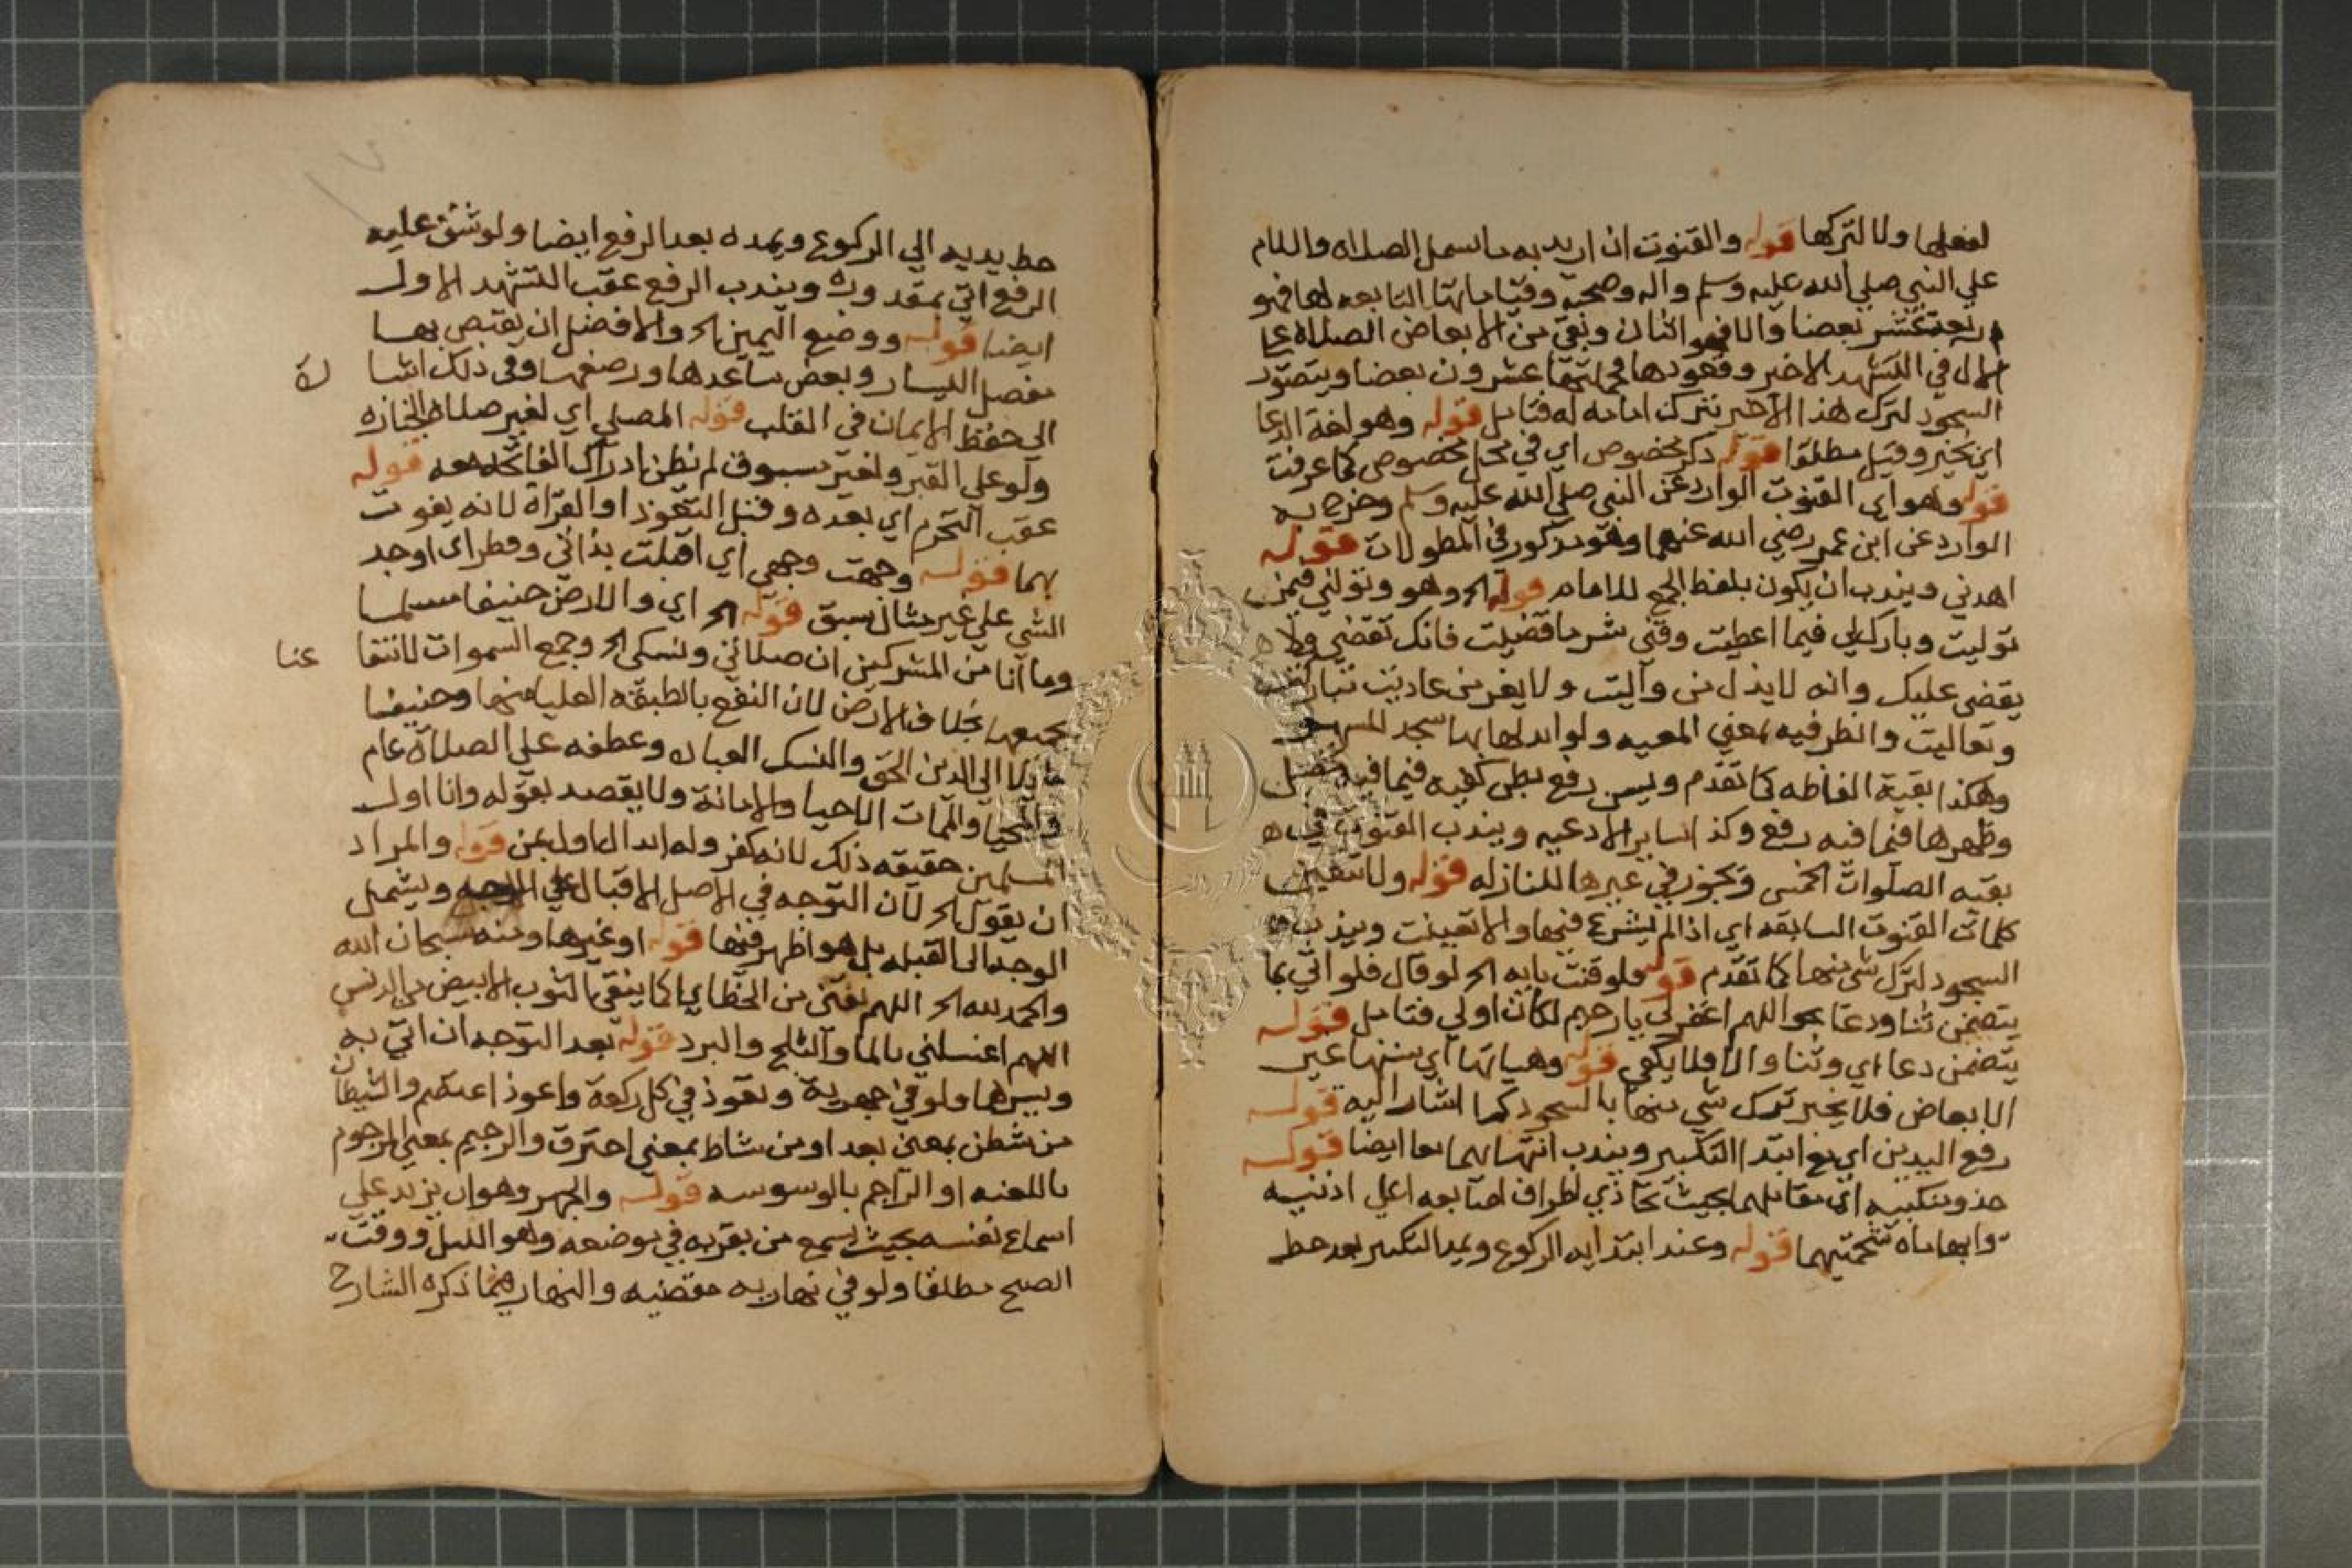 لفعلها ولا لتركها قوله والقنوت ان اريد به ما اسمل الصلاه والسلام
علي النبي صلي الله عليه وسلم واله وصحبه وقياماتها التابعه لها فهو
بعضا والا فهو اثنان وبقي من الابعاض الصلاة علي
الال في التشهد الاخير وقعودها فجملتها عشرون بعضا ويتصور
السجود لترك هذا الاخير بترك امامه له فتامل قوله وهو لغة الدعا
اي بخير وقيل مطلقا قوله ذكر مخصوص اي في محل مخصوص كما عرفت
قوله وهو اي القنوت الوارد عن النبي صلي الله عليه وسلم وخرج به
الوارد عن ابن عمر رضي الله عنهما وهو مذكور في المطولات قوله
اهدني ويندب ان يكون بلفظ الجمع للامام قوله الخ وهو وتولني فيمن
توليت وبارك لي فيما اعطيت وقني شر ما قضيت فانك تقضي ولا
يقضي عليك وانه لا يذل من واليت ولا يعز من عاديت تباركت
وتعاليت والظرفيه بمعني المعيه ولو ابدلها بها سجد للسهو
وهكذا بقية الفاظه كما تقدم ويسن رفع بطن كفيه فيما فيه تحصيل
وظهرها فيما فيه رفع وكذا ساير الادعيه ويندب القنوت في
بقيه الصلوات الخمس ويجوز في غيرها للنازله قوله ولا تتعين
كلمات القنوت السابقه اي اذا لم يشرع فيها والا تعينت ويندب
السجود لترك شي منها كما تقدم قوله فلو قنت بايه الخ لو قال فلو اتي بما
يتضمن ثنا ودعا نحو اللهم اغفر لي يا رحيم لكان اولي فتامل قوله
يتضمن دعا اي وثنا والا فلا يكفي قوله وهياتها اي سننها غير
الابعاض فلا يجبر ترك شي منها بالسجود كما اشار اليه قوله
رفع اليدين اي مع ابتدا التكبير ويندب انتهاهما معا ايضا قوله
حذو منكبيه اي مقابلهما بحيث تحاذي اطراف اصابعه اعلي اذنيه
وابهاماه شحمتيهما قوله وعند ابتدايه الركوع ويمد التكبير بعد حط
حط يديه الي الركوع ويمده بعد الرفع ايضا ولو شق عليه
الرفع اتي بمقدوره ويندب الرفع عقب التشهد الاول
ايضا قوله ووضع اليمين الخ والافضل ان يقبض بها
مفصل اليسار وبعض ساعدها ورصغها وفي ذلك اشا رة
الي حفظ الايمان في القلب قوله المصلي اي لغير صلاة الجنازه
ولو علي القبر ولغير مسبوق لم يظن ادراك الفاتحه معه قوله
عقب التحرم اي بعده وقبل التعوذ او القراة لانه يفوت
بهما قوله وجهت وجهي اي اقبلت بذاتي وفطر اي اوجد
الشي علي غير مثال سبق قوله الخ اي والارض حنيفا مسلما
وما انا من المشركين ان صلاتي ونسكي الخ وجمع السموات لانتفا عنا
بجميعها بخلاف الارض لان النفع بالطبقه العليا منها وحنيفا
مايلا الي الدين الحق والنسك العباده وعطفه علي الصلاة عام
والمحيا والممات الاحيا والاماتة ولا يقصد بقوله وانا اول
المسلمين حقيقه ذلك لانه كفر وله ابدال اول بمن قوله والمراد
ان يقول الخ لان التوجه في الاصل الاقبال علي الوجه ويشمل
الوجه الي القبله بل هو اظهر فيها قوله او غيرها ومنه سبحان الله
والحمد لله الخ اللهم نقني من الخطايا كما ينقي الثوب الابيض من الدنس
اللهم اغسلني بالما والثلج والبرد قوله بعد التوجه ان اتي به
ويسرهما ولو في جهرية وتعوذ في كل ركعة واعوذ اعتصم والشيطان
من شطن بمعني بعد او من شاط بمعني احترق والرجيم بمعني المرجوم
باللعنه او الراجم بالوسوسه قوله والجهر وهو ان يزيد علي
اسماع نفسه بحيث يسمع من بقربه في موضعه وهو الليل ووقت
الصبح مطلقا ولو في نهاريه مقضيه والنهار مما ذكره الشارح